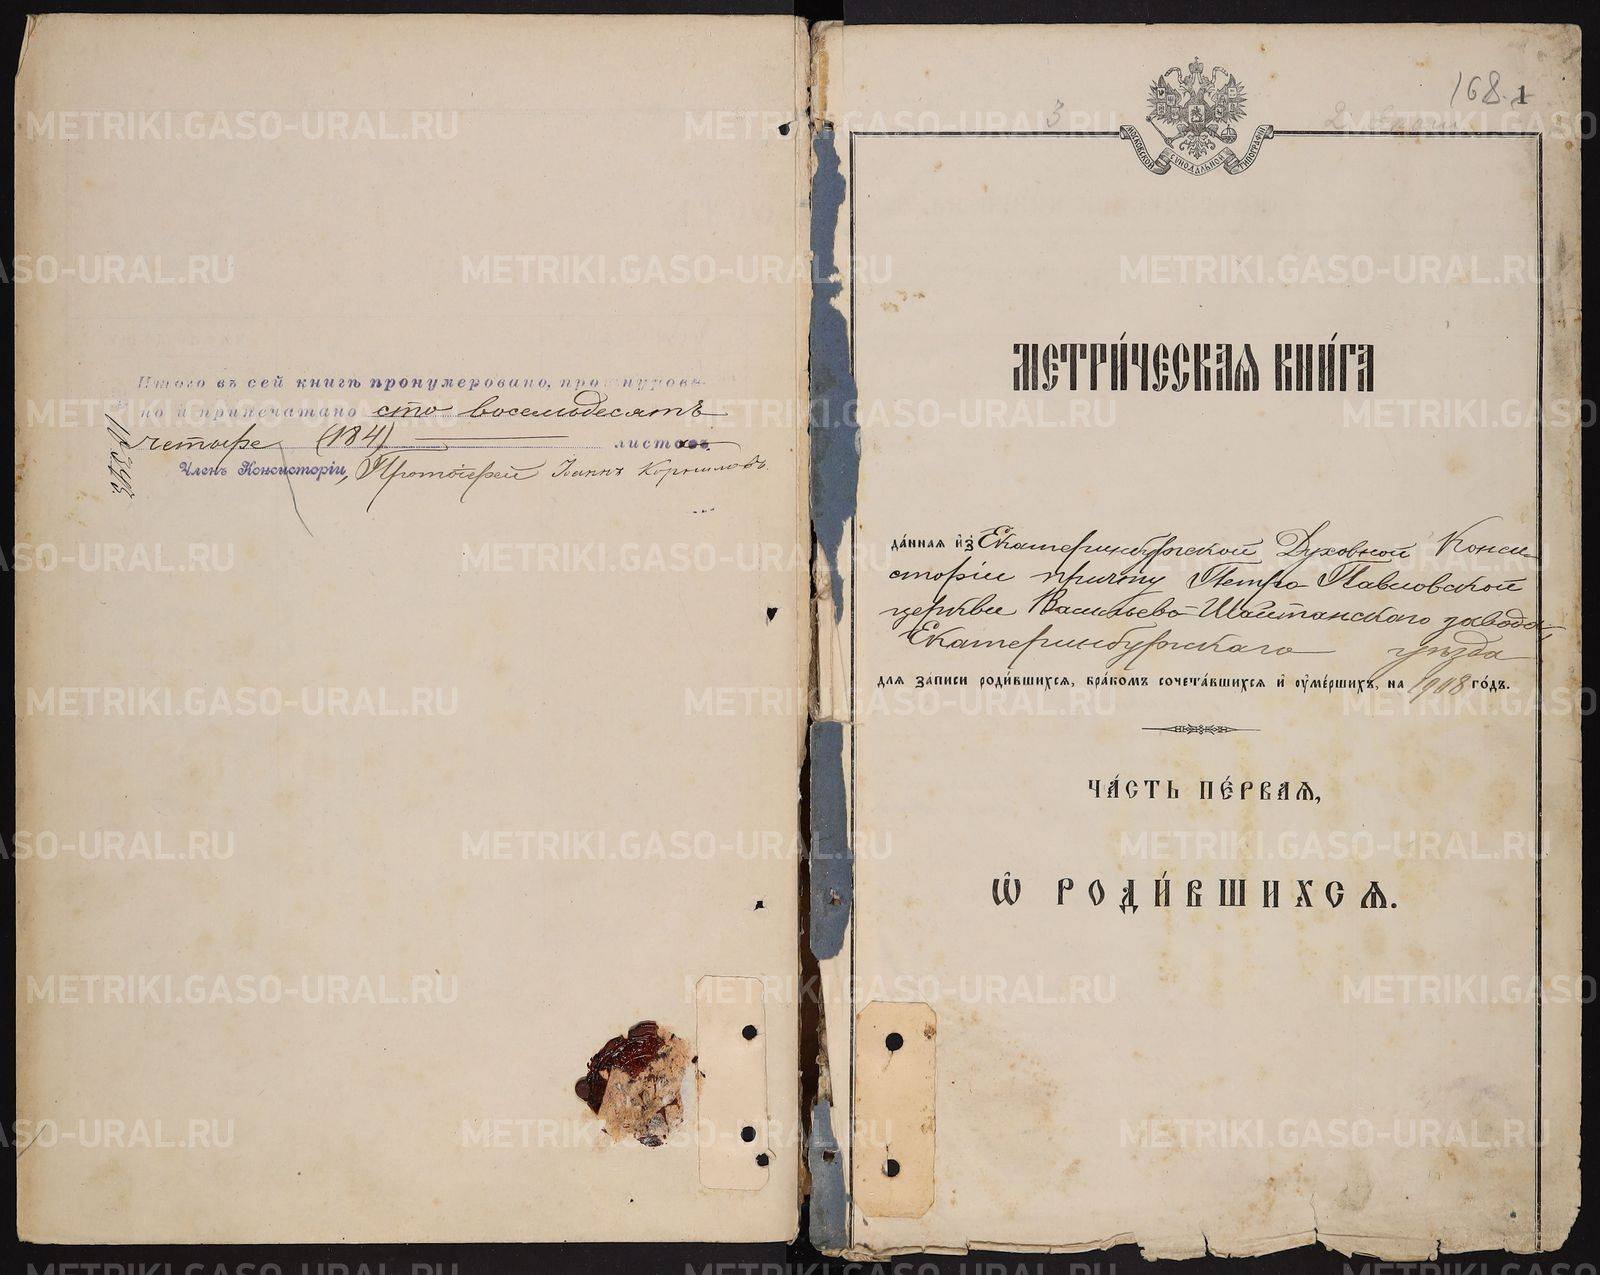 Итого въ сей книгѣ пронумеровано, прошнурова-
но и припечатано сто восемьдесятъ
четыре (184) листовъ
Членъ Консисторіи, Протоіерей Іоаннъ Корниловъ
3
168.
1
МОСКОВСКОЙ СѴНОДАЛЬНОЙ ТИПОГРАФІИ
МЕТРИ́ЧЕСКАѦ КНИ́ГА
да́ннаѧ и҆з̾ Екатеринбургской Духовной Конси-
сторіи причту Петро-Павловской
церкви Васильево-Шайтанскаго завода,
Екатеринбургскаго уѣзда
длѧ записи роди́вшихсѧ, бра́комъ сочета́вшихсѧ и҆ ᲂу҆ме́ршихъ, на 1908 го́дъ.
ЧА́СТЬ ПЕ́РВАѦ,
Ѽ РОДИ́ВШИХСѦ.
METRIKI.GASO-URAL.RU